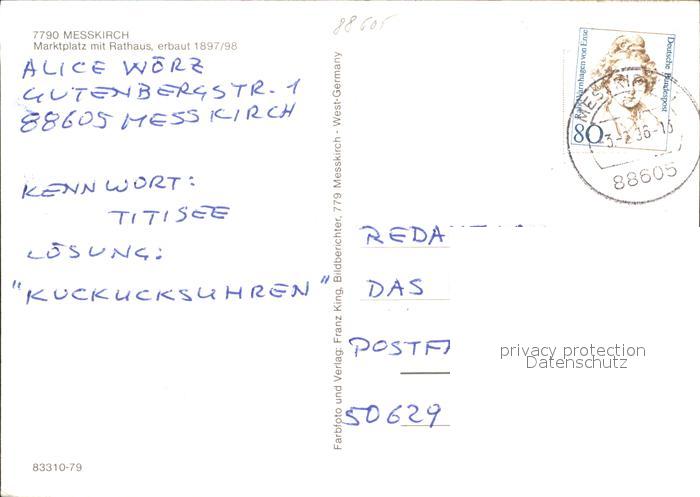 7790 MESSKIRCH
Marktplatz mit Rathaus, erbaut 1897/98
ALICE WÖRZ
GUTENBERGSTR. 1
88605 MESSKIRCH
KENNWORT:
TITISEE
LÖSUNG:
"KUCKUCKSUHREN"
83310-79
Farbfoto und Verlag: Franz King, Bildberichter, 779 Messkirch - West-Germany
88605
Deutsche Bundespost
Rahel Varnhagen von Ense
80
88605
REDA
DAS
POSTF
50629
privacy protection
Datenschutz